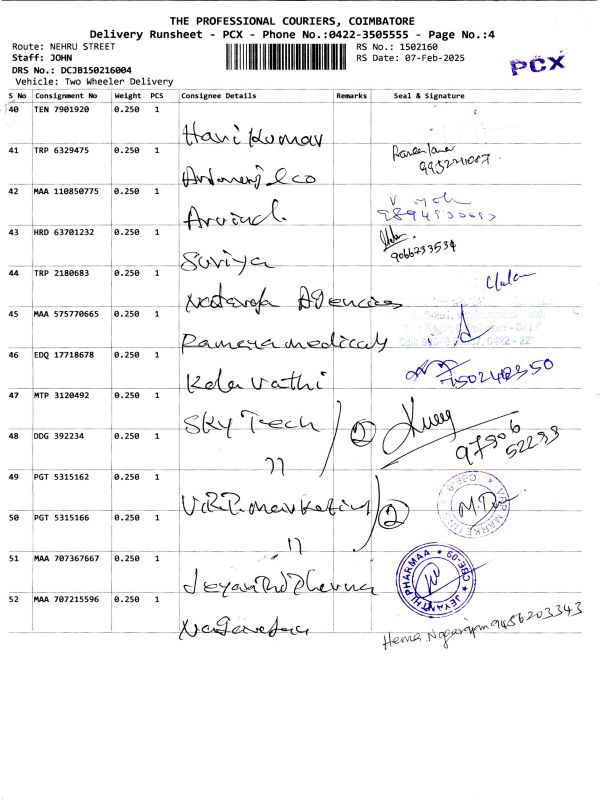 THE PROFESSIONAL COURIERS, COIMBATORE
Delivery Runsheet - PCX - Phone No.:0422-3505555 - Page No.:4
Route: NEHRU STREET
Staff: JOHN
DRS No.: DCJB150216004
Vehicle: Two Wheeler Delivery
RS No.: 1502160
RS Date: 07-Feb-2025
PCX
S No Consignment No Weight PCS Consignee Details Remarks Seal & Signature
40 TEN 7901920 0.250 1 Hari Kumar
41 TRP 6329475 0.250 1
42 MAA 110850775 0.250 1 Arvind
43 HRD 63701232 0.250 1 Suriya 9066733534
44 TRP 2180683 0.250 1 Nataraja Agencies
45 MAA 575770665 0.250 1 Ramana medicals
46 EDQ 17718678 0.250 1 Kalavathi
47 MTP 3120492 0.250 1 SKY Tech
48 DDG 392234 0.250 1 11 2 97906 52293
49 PGT 5315162 0.250 1 V.R.P. marketing
50 PGT 5315166 0.250 1 11 2
51 MAA 707367667 0.250 1 Jeyanthi Pharma
JEYANTHI PHARMAA CBE-09
52 MAA 707215596 0.250 1 Hema Nagarajan 9456203343